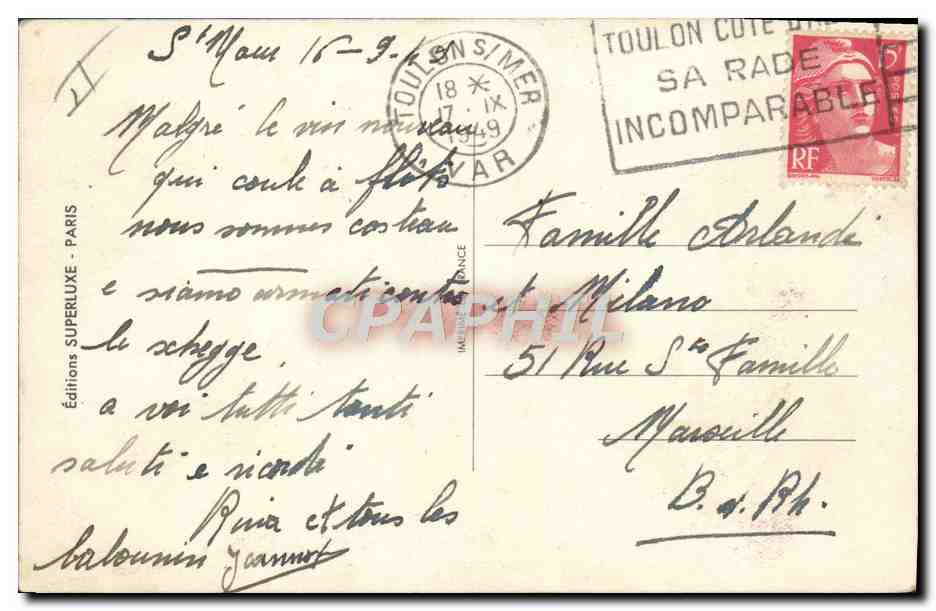 St Maur 16-9-49
Malgré le vin nouveau
qui coule à flots
nous sommes costeau
e siamo armati contro
le schegge
a voi tutti tanti
saluti e ricordi
Rina et tous les
Jeannot
Éditions SUPERLUXE - PARIS
IMPRIMÉ FRANCE
TOULON S/MER
18 *
17 - IX
1949
VAR
TOULON COTE D'AZ
SA RADE
INCOMPARABLE
5F
POSTES
RF
Famille Orlandi
et Milano
51 Rue Ste Famille
Marseille
B. d. Rh.
CPAPHIL